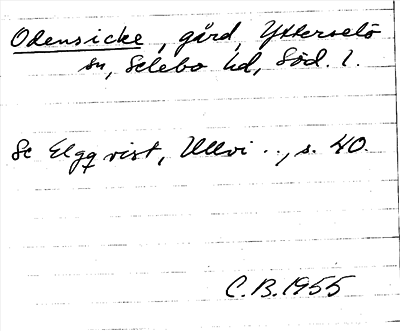 Odensicke, gård, Ytterselö
sn, Selebo hd, Söd. l.
Se Elgqvist, Ullvi .., s. 40.
C.B. 1955